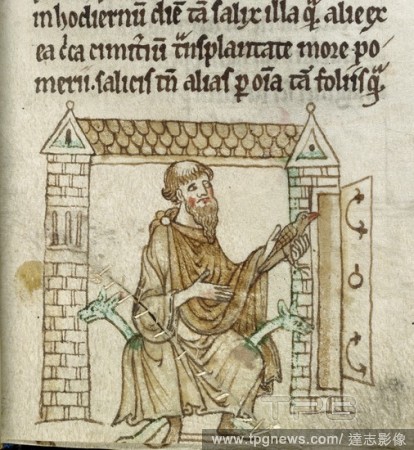 inhodiernū diē tā salix illa q̄ alie ex
ea c̄ca cimit̄iū t̄nsplantate more po-
merii. salicis tn̄ alias ꝑ oīa tā foliis q̄
TPG
www.tpgnews.com/ 達志影像